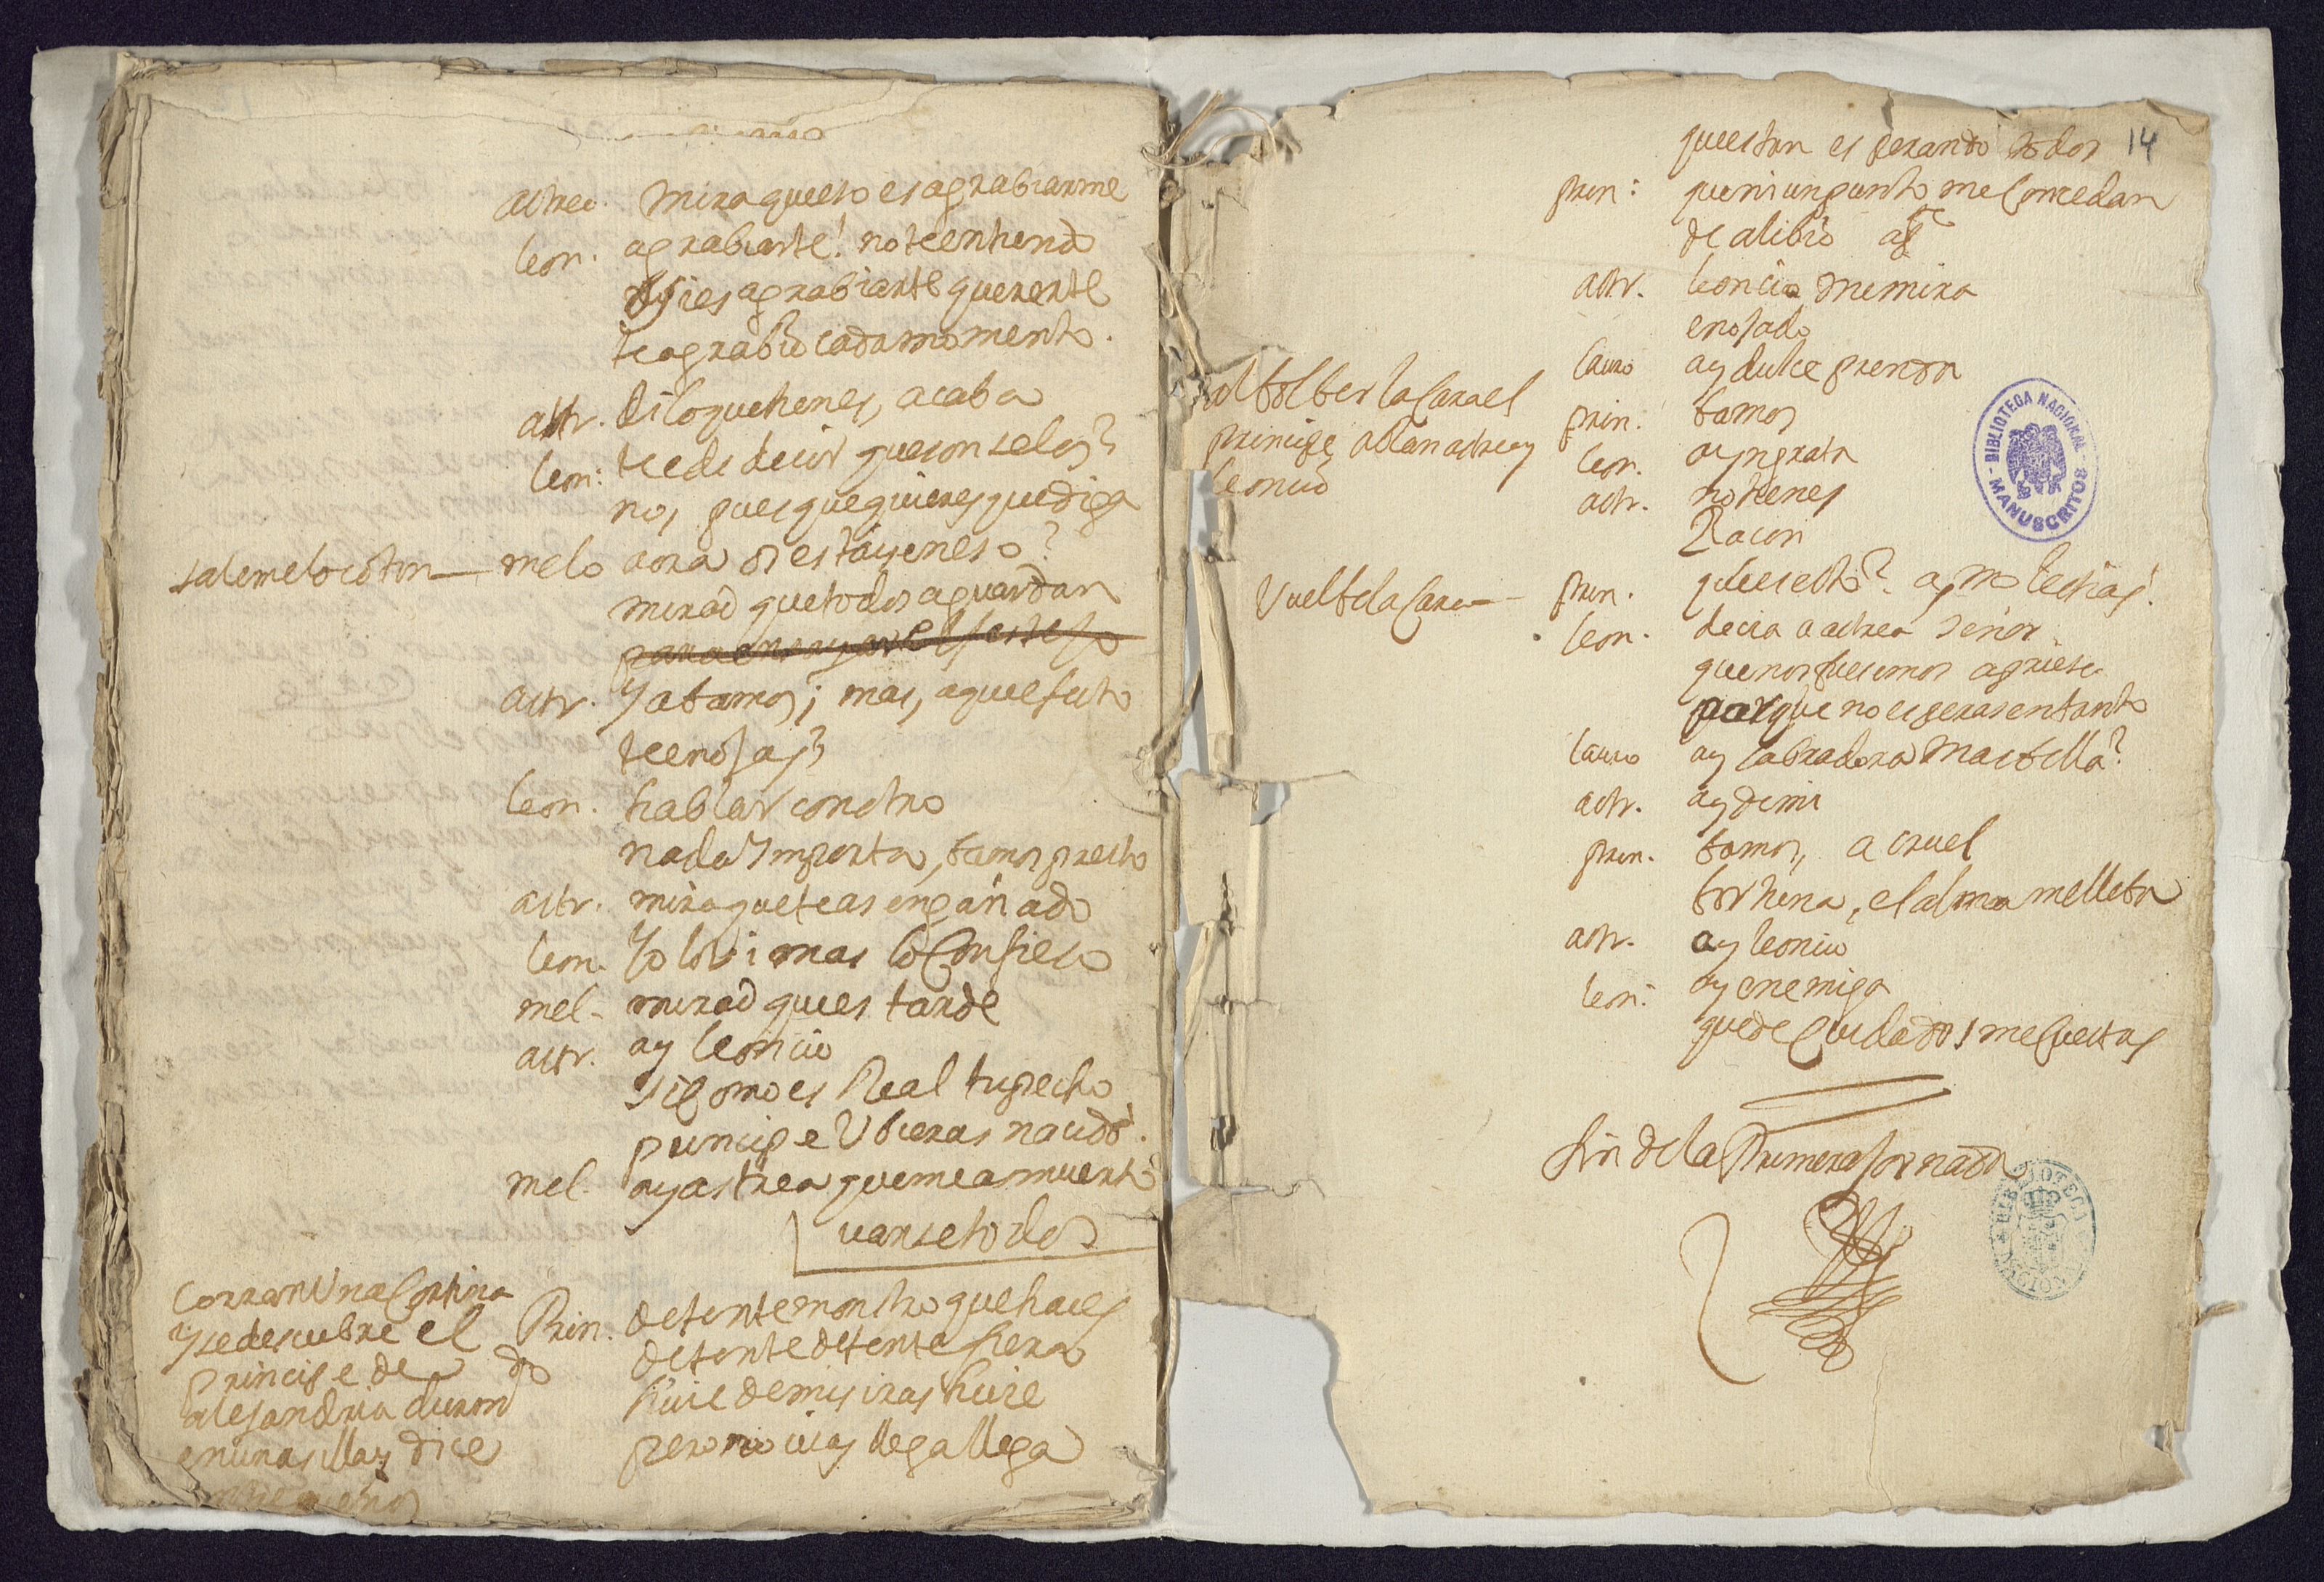 astrea. mira queeso es agrabiarme
leon. agrabiarte! no te entiendo
y si es agrabiarte quererte
te agrabio cada momento.
astr. di lo que tienes, acaba
leon: he de decir que son selos?
no, pues que quieres que diga
sale melocoton melo aora os estais en eso?
mirad que todos aguardan
para ensayar el festejo
astr. ya bamos; mas, a que efeto
te enojas?
leon. hablar con otro
nada ymporta, bamos presto
astr. mira que te as engañado
leon. yo lo bi mas lo confieso
mel. mirad que es tarde
astr. ay leoncio
si como es Real tu pecho
principe Ubieras nacido.
mel. ay astrea que me as muerto
vanse todos
corran Una cortina
y se descubre el
principe de
alejandria durmiendo
en una silla y dice
entre sueños
Prin. detente monstro que haces
detente detente fiera
huie de mis iras huie
pero no uias llega llega
14
que estan esperando todos
prin: que ni un punto me concedan
de alibio
astr. leoncio me mira
enojado
lauro ay dulce prenda
al bolber la cara el
principe ablan astrea y
leoncio
prin. bamos
leon. ay yngrata
astr. no tienes
Racon
Vuelbe la cara
prin. que es esto? ay molestias!
leon. decia a astrea señor
que nos fuesemos apriesa
porque no esperasen tanto
lauro ay labradora mas bella?
astr. ay de mi
prin. bamos, a cruel
torhena, el alma me lleba
astr. ay leoncio
leon: ay enemiga
que de cuidados me cuestas
fin de la Primera jornada
BIBLIOTECA NACIONAL
MANUSCRITOS
BIBLIOTECA NACIONAL